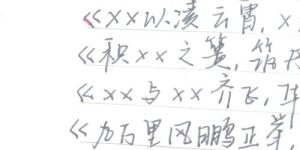 《××以凌云霄,×
《积××之篑,
《××与××齐飞,
《九万里风鹏正举,